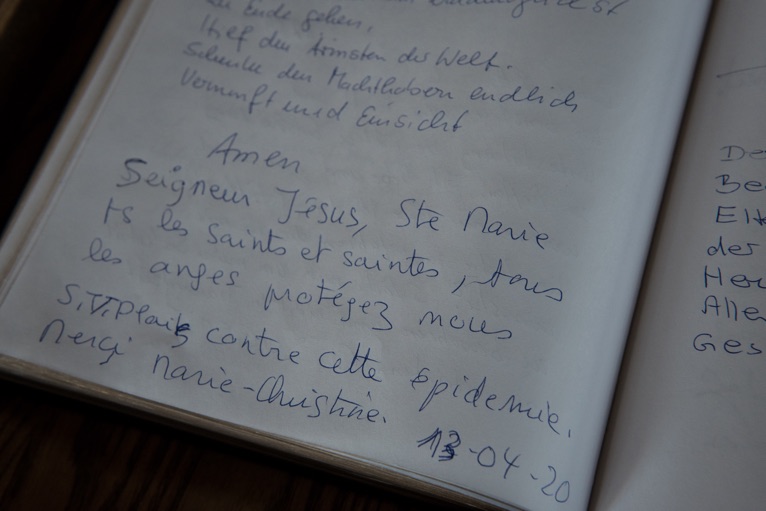 zu Ende gehen,
Hilf den Ärmsten der Welt.
Schenke den Machthabern endlich
Vernunft und Einsicht
Amen
Seigneur Jésus, Ste Marie
ts les saints et saintes, tous
les anges protégez nous
S.V.Plait contre cette épidemie.
Merçi Marie-Christine.
13-04-20
De
Be
Elt
der
Her
Alle
Ges